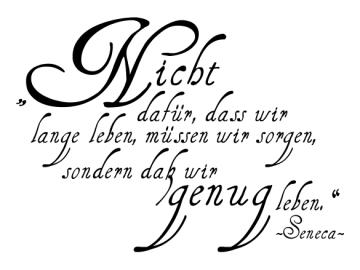 „Nicht
dafür, dass wir
lange leben, müssen wir sorgen,
sondern daß wir
genug leben.“
~Seneca~